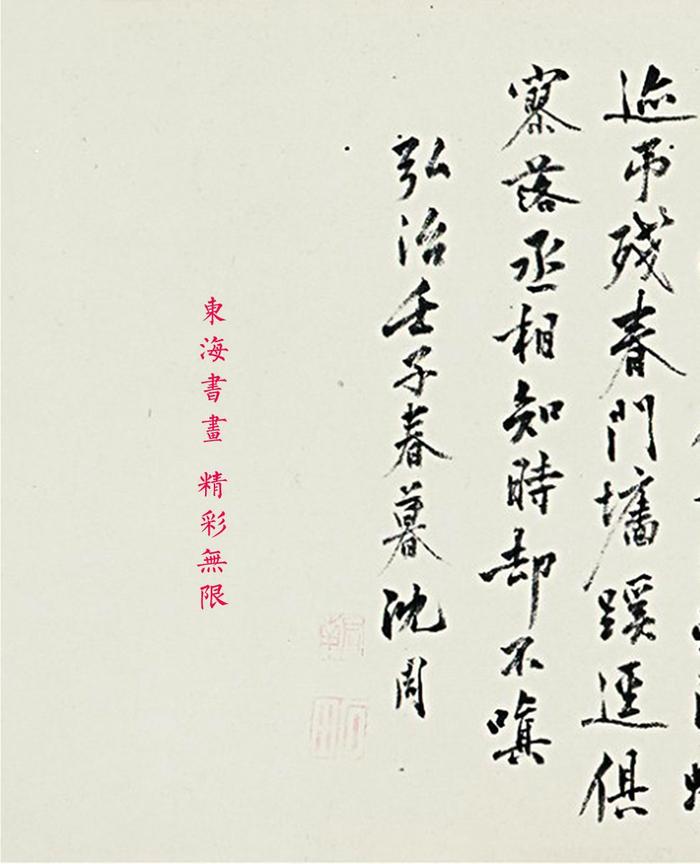 迹吊殘春門墻蹊逕俱
寥落丞相知時却不嗔
弘治壬子春暮沈周
東海書畫 精彩無限